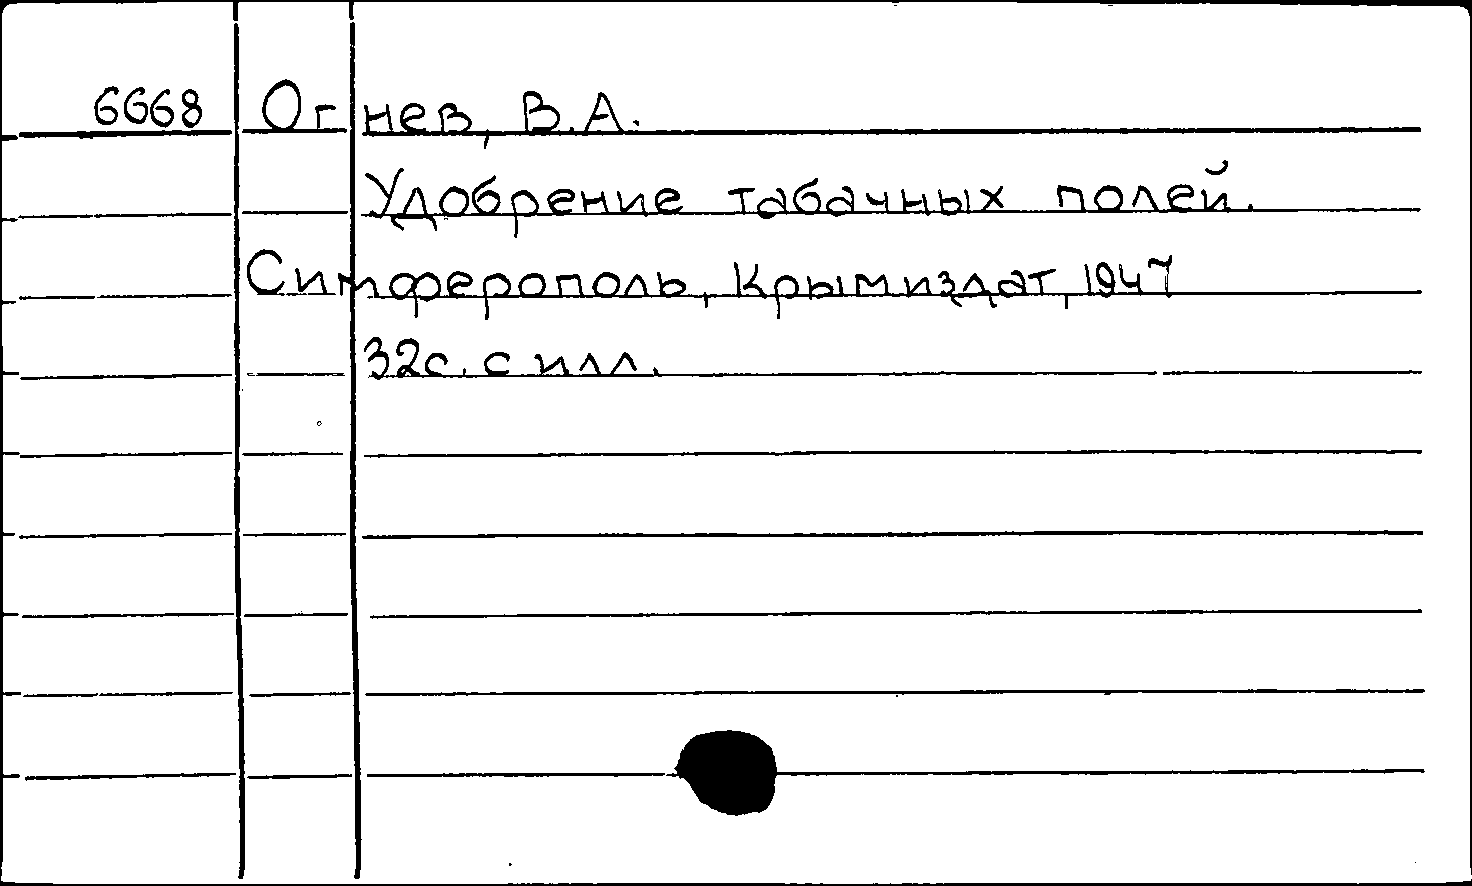 6668 Огнев, В.А.
Удобрение табачных полей.
Симферополь, Крымиздат, 1947
32с. с илл.